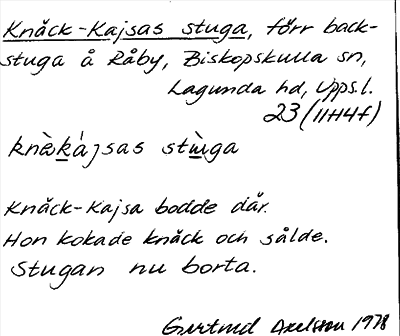 Knäck-Kajsas stuga, förr back-
stuga å Råby, Biskopskulla sn,
Lagunda hd, Uppsl.
23 (11H4f)
knäkájsas stùga
Knäck-Kajsa bodde där.
Hon kokade knäck och sålde.
Stugan nu borta.
Gertrud Axelsson 1978